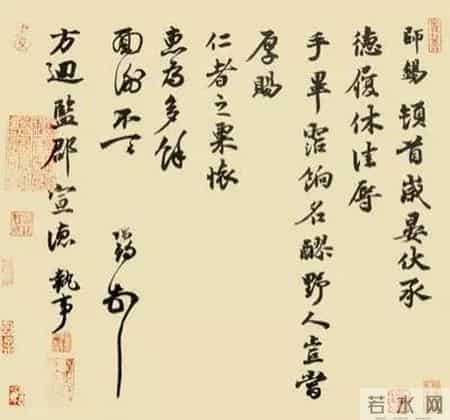 師錫頓首歲晏伏承
德履休佳辱
手畢餉名醪野人豈當
厚賜
仁者之粟懷
惠為多餘
面謝不一
方迴監郡宣德執事
若水网